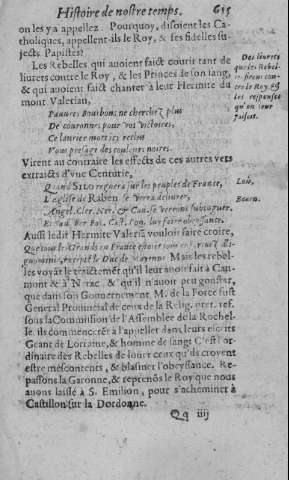 Histoire de nostre temps. 615
on les y a appellez. Pourquoy, disoient les Ca-
tholiques, appellent-ils le Roy, & ses fidelles su-
jects, Papistes?
Les Rebelles qui auoient faict courir tant de
liurets contre le Roy, & les Princes de son sang,
& qui auoient faict chanter à leur Hermite du
mont Valerian,
Des liurets
que les Rebel-
les firent con-
tre le Roy, &
des responses
qu'on leur
faisoit.
Pauures Bourbons ne cherchez plus
De couronnes pour vos victoires,
Ce laurier mort icy reclus
Vous presage des couleurs noires.
Virent au contraire les effects de ces autres vers
extraicts d'vne Centurie,
Quand SILO regnera sur les peuples de France,
L'eglise de Raben se verra deliurer,
Lois,
Bearn.
Angel. Cler. Ner. & Cau. se verront subiuguer,
Et luy faire obeyssance.
Aussi ledit Hermite Valeriã vouloit faire croire,
Que tous les Grands en France estoient
excepté le Duc de Mayenne. Mais les rebel-
les voyãt le traictemẽt qu'il leur auoit faict à Cau-
mont & à N rac, & qu'il n'auoit peu gouster,
que dans son Gouuernement M. de la Force fust
General Prouincial de ceux de la Relig. pret. ref.
sous la Commission de l'Assemblee de la Rochel-
le, ils commencerẽt à l'appeller dans leurs escrits
Geant de Lorraine, & homme de sang: C'est l'or-
dinaire des Rebelles de louer ceux qu'ils croyent
estre mescontents, & blasmer l'obeyssance. Re-
passons la Garonne, & reprenõs le Roy que nous
auons laissé à S. Emilion, pour s'acheminer à
Castillon sur la Dordogne.
Qq iiij